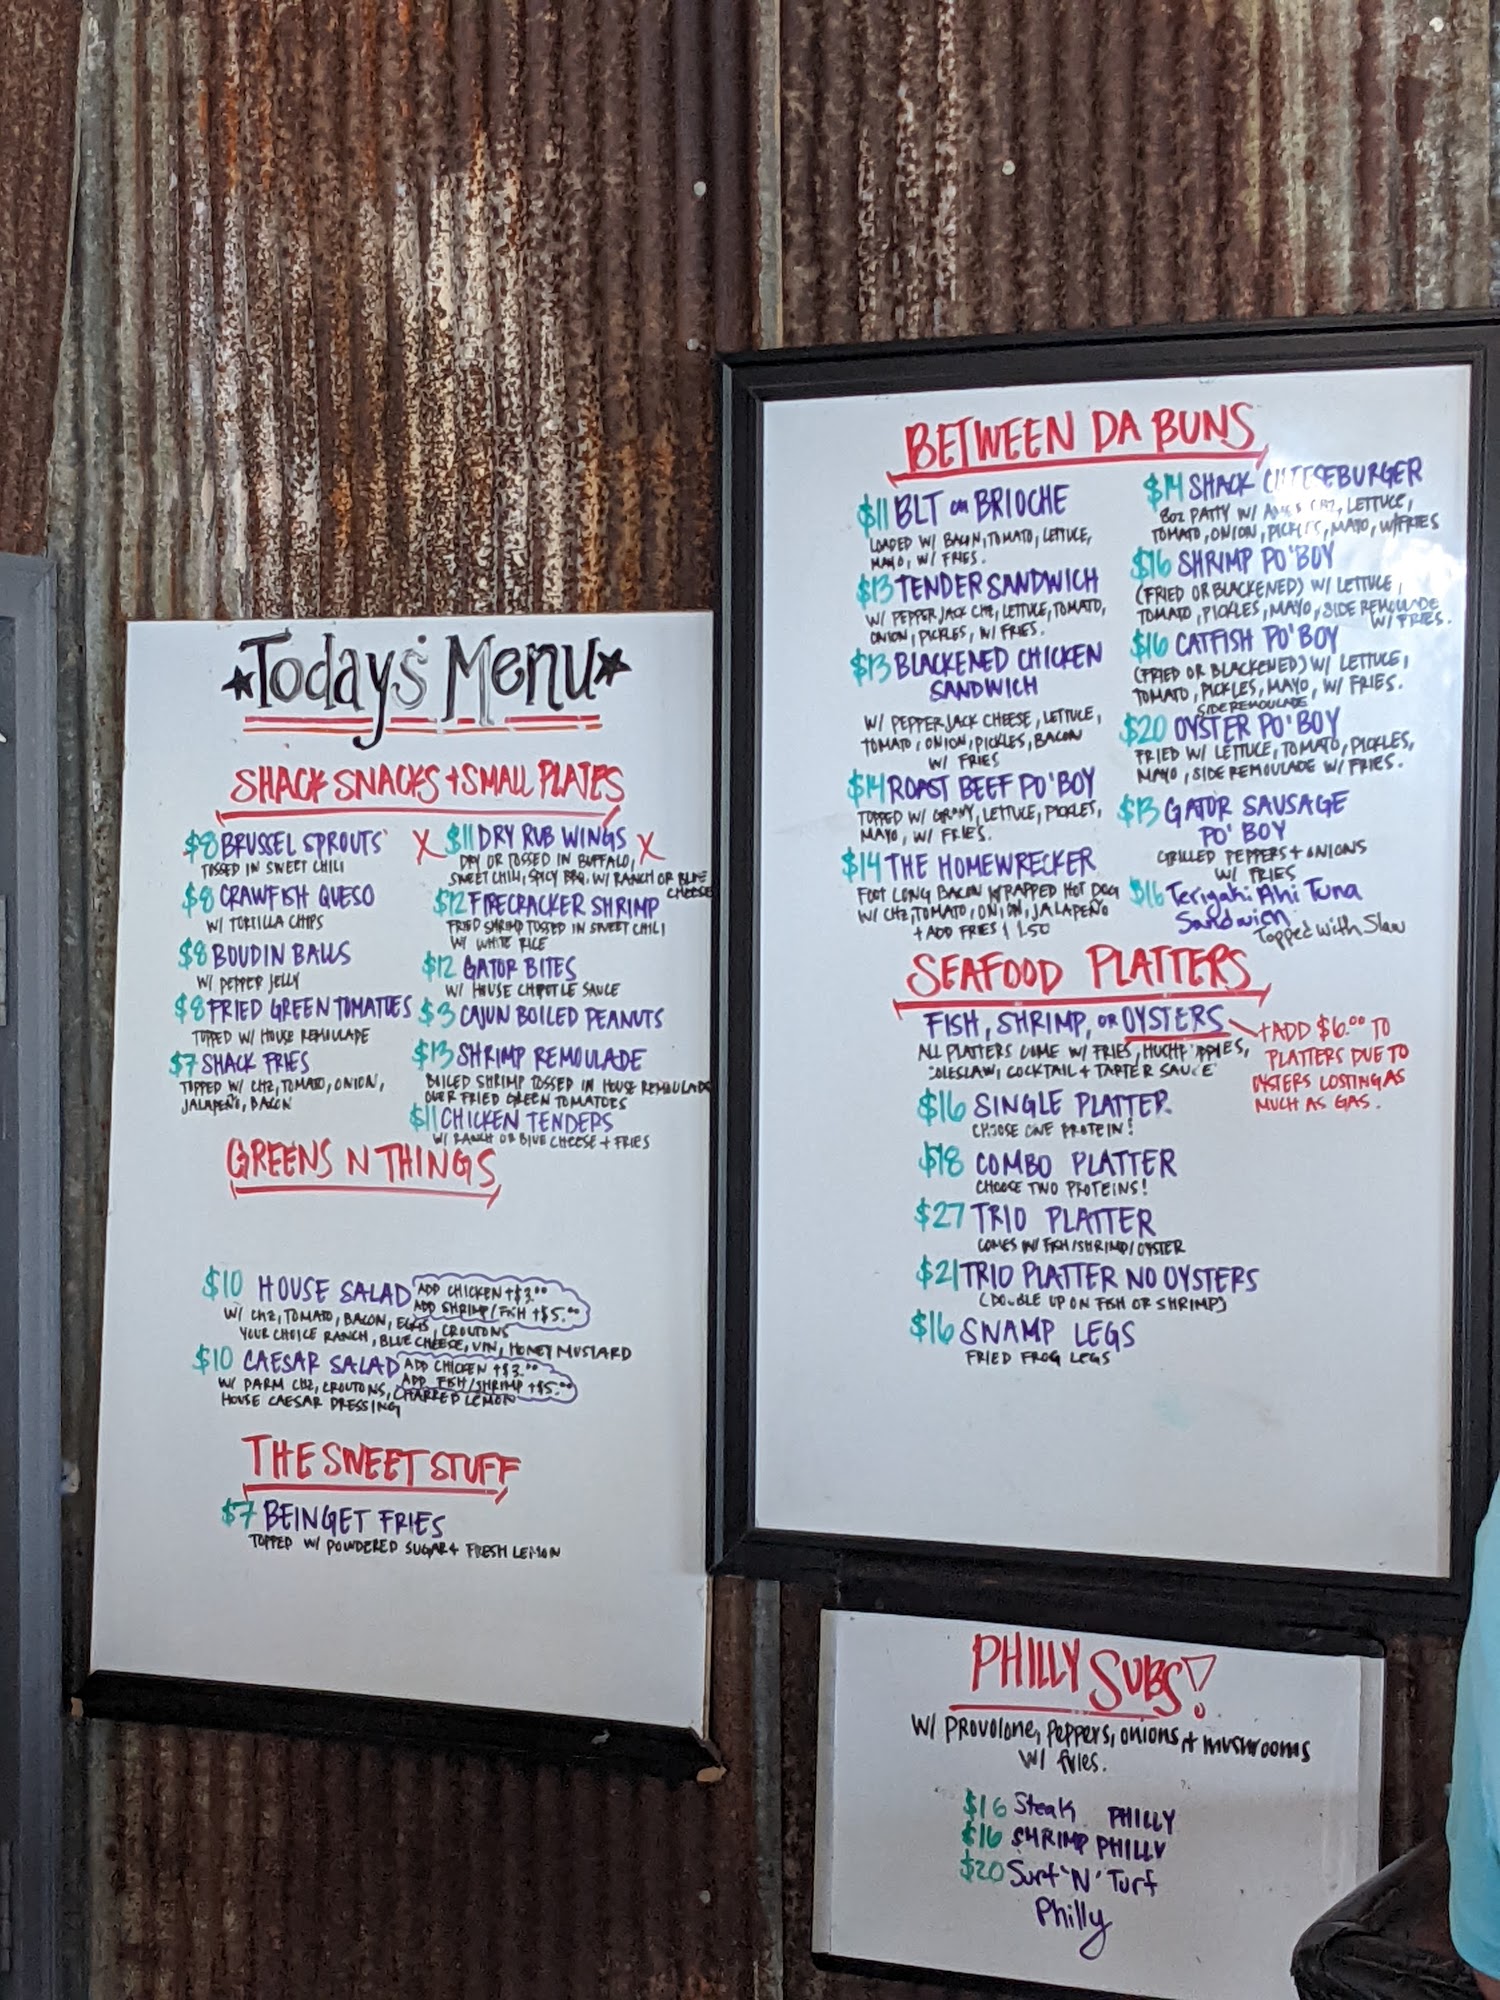 Today's Menu
SHACK SNACKS + SMALL PLATES
$8 BRUSSEL SPROUTS
TOSSED IN SWEET CHILI
$8 CRAWFISH QUESO
W/ TORTILLA CHIPS
$8 BOUDIN BALLS
W/ PEPPER JELLY
$8 FRIED GREEN TOMATOES
TOPPED W/ HOUSE REMOULADE
$7 SHACK FRIES
TOPPED W/ CHZ, TOMATO, ONION,
JALAPEÑO, BACON
X $11 DRY RUB WINGS X
DRY OR TOSSED IN BUFFALO,
SWEET CHILI, SPICY BBQ. W/ RANCH OR BLUE
CHEESE
$12 FIRECRACKER SHRIMP
FRIED SHRIMP TOSSED IN SWEET CHILI
W/ WHITE RICE
$12 GATOR BITES
W/ HOUSE CHIPOTLE SAUCE
$3 CAJUN BOILED PEANUTS
$13 SHRIMP REMOULADE
BOILED SHRIMP TOSSED IN HOUSE REMOULADE
OVER FRIED GREEN TOMATOES
$11 CHICKEN TENDERS
W/ RANCH OR BLUE CHEESE + FRIES
GREENS N THINGS
$10 HOUSE SALAD
ADD CHICKEN +$3.00
ADD SHRIMP/FISH +$5.00
W/ CHZ, TOMATO, BACON, EGGS, CROUTONS
YOUR CHOICE RANCH, BLUE CHEESE, VIN, HONEY MUSTARD
$10 CAESAR SALAD
ADD CHICKEN +$3.00
ADD FISH/SHRIMP +$5.00
W/ PARM CHZ, CROUTONS, CHARRED LEMON
HOUSE CAESAR DRESSING
THE SWEET STUFF
$7 BEINGET FRIES
TOPPED W/ POWDERED SUGAR + FRESH LEMON
BETWEEN DA BUNS
$11 BLT ON BRIOCHE
LOADED W/ BACON, TOMATO, LETTUCE,
MAYO, W/ FRIES.
$13 TENDER SANDWICH
W/ PEPPER JACK CHZ, LETTUCE, TOMATO,
ONION, PICKLES, W/ FRIES.
$13 BLACKENED CHICKEN
SANDWICH
W/ PEPPER JACK CHEESE, LETTUCE,
TOMATO, ONION, PICKLES, BACON
W/ FRIES
$14 ROAST BEEF PO'BOY
TOPPED W/ GRAVY, LETTUCE, PICKLES,
MAYO, W/ FRIES.
$14 THE HOMEWRECKER
FOOT LONG BACON WRAPPED HOT DOG
W/ CHZ, TOMATO, ONION, JALAPEÑO
+ ADD FRIES $1.50
$14 SHACK CHEESEBURGER
8OZ PATTY W/ CHZ, LETTUCE,
TOMATO, ONION, PICKLES, MAYO, W/ FRIES
$16 SHRIMP PO'BOY
(FRIED OR BLACKENED) W/ LETTUCE,
TOMATO, PICKLES, MAYO, SIDE REMOULADE
W/ FRIES.
$16 CATFISH PO'BOY
(FRIED OR BLACKENED) W/ LETTUCE,
TOMATO, PICKLES, MAYO, W/ FRIES.
SIDE REMOULADE
$20 OYSTER PO'BOY
FRIED W/ LETTUCE, TOMATO, PICKLES,
MAYO, SIDE REMOULADE W/ FRIES.
$13 GATOR SAUSAGE
PO'BOY
GRILLED PEPPERS + ONIONS
W/ FRIES
$16 Teriyaki Ahi Tuna
Sandwich
Topped with Slaw
SEAFOOD PLATTERS
FISH, SHRIMP, OR OYSTERS
ALL PLATTERS COME W/ FRIES, HUSHPUPPIES,
COLESLAW, COCKTAIL + TARTER SAUCE
+ADD $6.00 TO
PLATTERS DUE TO
OYSTERS COSTING AS
MUCH AS GAS.
$16 SINGLE PLATTER
CHOOSE ONE PROTEIN!
$18 COMBO PLATTER
CHOOSE TWO PROTEINS!
$27 TRIO PLATTER
COMES W/ FISH/SHRIMP/OYSTER
$21 TRIO PLATTER NO OYSTERS
(DOUBLE UP ON FISH OR SHRIMP)
$16 SWAMP LEGS
FRIED FROG LEGS
PHILLY SUBS!
W/ PROVOLONE, PEPPERS, ONIONS, + MUSHROOMS
W/ fries.
$16 Steak PHILLY
$16 SHRIMP PHILLY
$20 Surf 'N' Turf
Philly